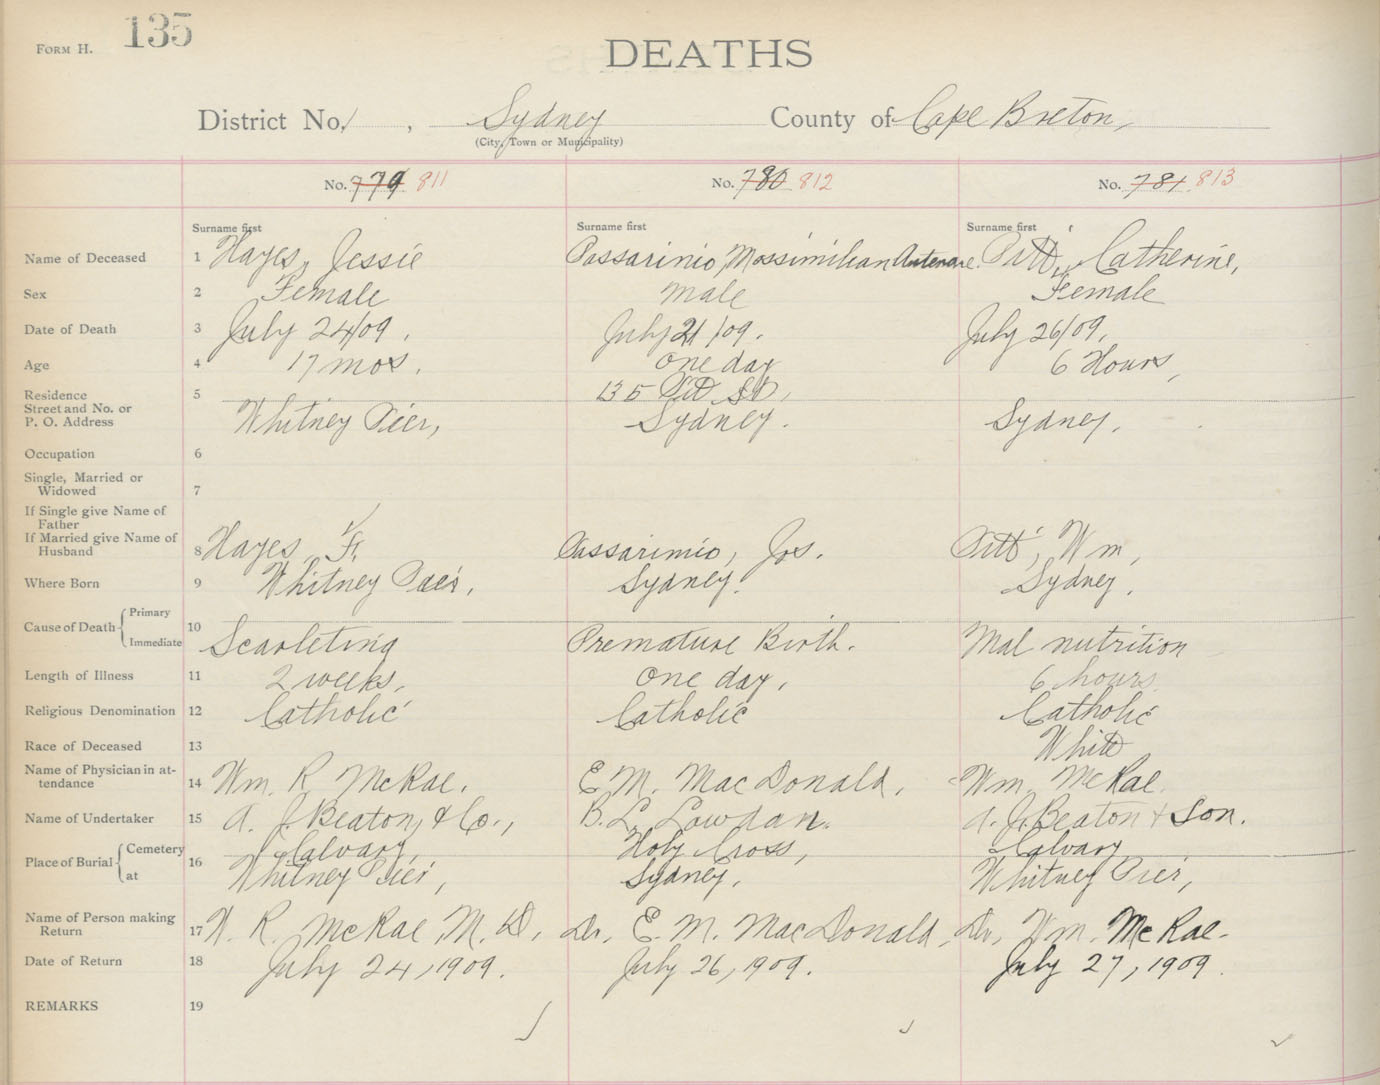 FORM H. 135
DEATHS
District No. 1, Sydney County of Cape Breton,
(City, Town or Municipality)
No. 779 811 No. 780 812 No. 781 813
Surname first Surname first Surname first
Name of Deceased 1 Hayes, Jessie Passarinio, Massimilian Pitt, Catherine,
Sex 2 Female Male Female
Date of Death 3 July 24/09. July 21/09. July 26/09.
Age 4 17 mos. One day 6 Hours,
Residence 5 135 Pitt St,
Street and No. or
P. O. Address Whitney Pier, Sydney. Sydney.
Occupation 6
Single, Married or
Widowed 7
If Single give Name of
Father
If Married give Name of
Husband 8 Hayes, F. Passarinio, Jos. Pitt, Wm,
Where Born 9 Whitney Pier, Sydney. Sydney.
Cause of Death Primary 10
Immediate Scarleting Premature Birth. Mal nutrition
Length of Illness 11 2 weeks, One day, 6 hours
Religious Denomination 12 Catholic Catholic Catholic
Race of Deceased 13 White
Name of Physician in at-
tendance 14 Wm. R. McRae. E. M. MacDonald, Wm. McRae.
Name of Undertaker 15 A. J. Beaton, & Co., B. L. Lowdan. A. J. Beaton & Son.
Place of Burial Cemetery 16 Calvary, Holy Cross, Calvary
at Whitney Pier, Sydney, Whitney Pier,
Name of Person making
Return 17 W. R. McRae, M. D. Dr. E. M. MacDonald, Dr. Wm. McRae.
Date of Return 18 July 24, 1909. July 26, 1909. July 27, 1909.
REMARKS 19